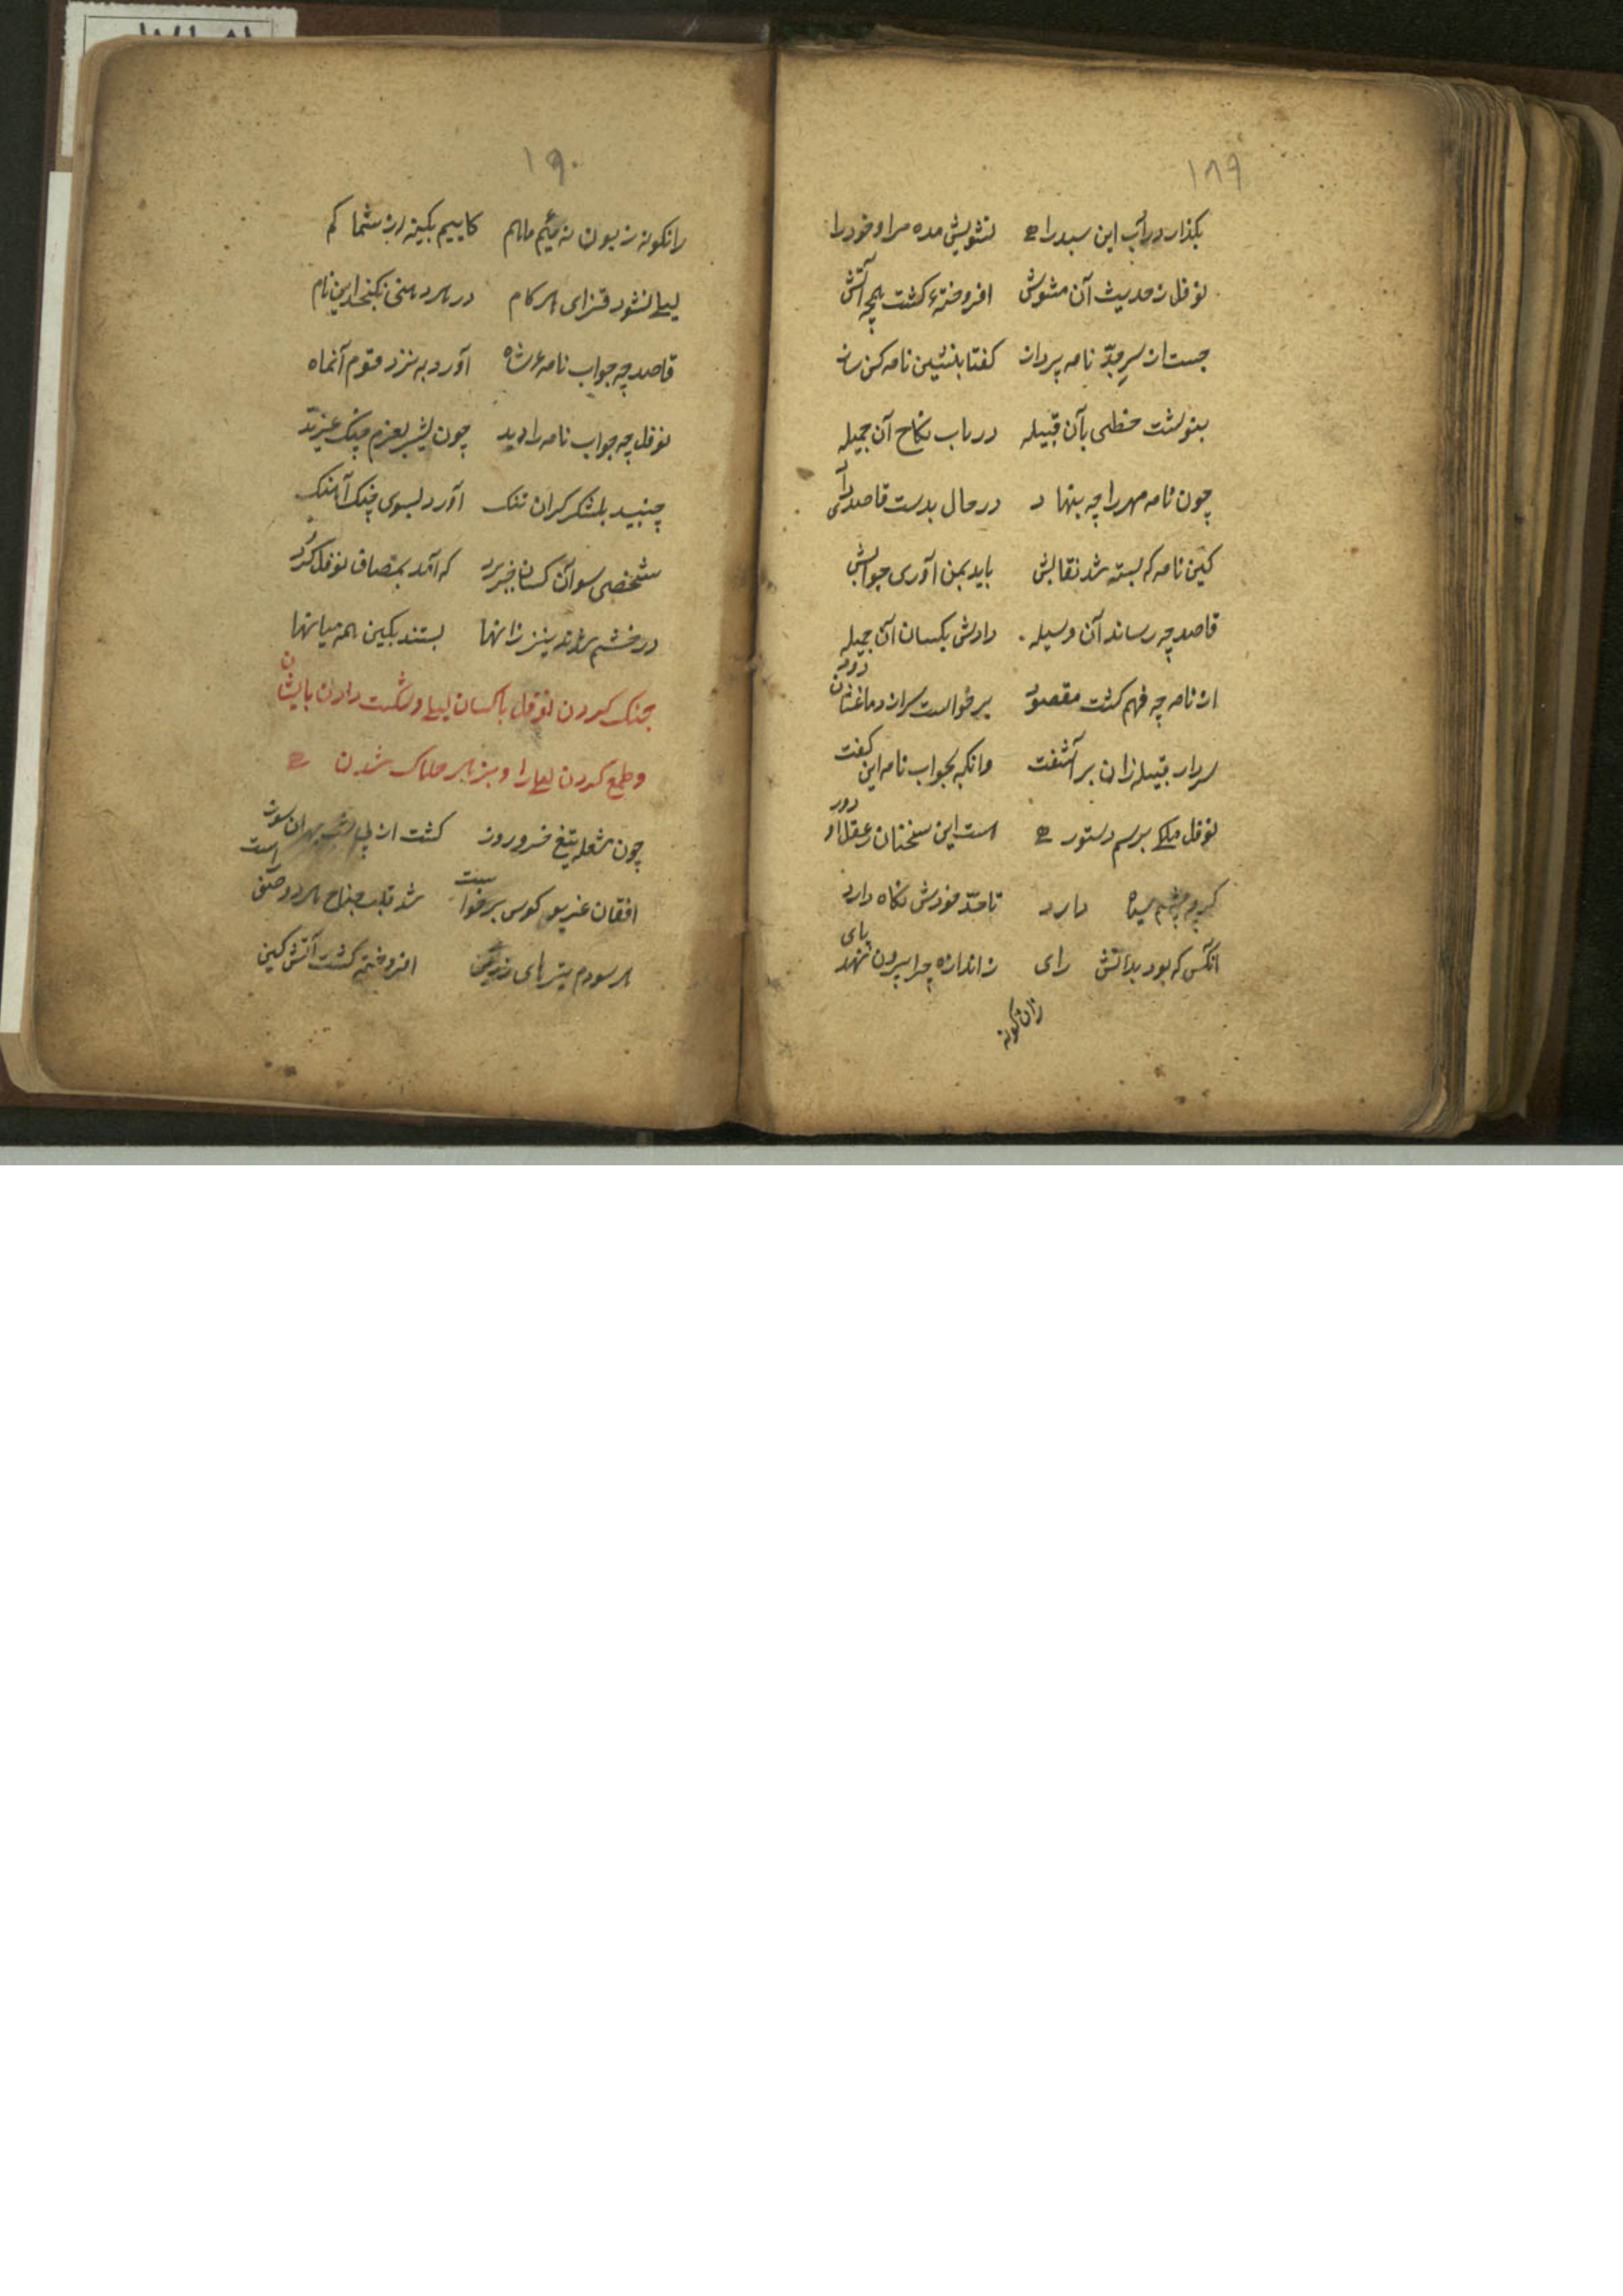 ۱۸۹
بکذار در آب این سبد را تشویش مده مرا و خود را
نوفل ز حدیث آن مشوش افروخته کشت همچه آتش
جست از سر جد نامه پرداز کفتا بنشین نامه کن ساز
بنوشت خطی بآن قبیله در باب نکاح آن جمیله
چون نامه مهر را چه بنهاد در حال بدست قاصدش داد
کین نامه که بسته شد نقابش باید بمن آوری جوابش
قاصد چه رساند آن وسیله دادش بکسان آن جمیله
از نامه چه فهم کشت مقصود برخواست سران دماغشان دود
سردار قبیله زان بر آشفت وانکه بجواب نامه این کفت
نوفل ملکی برسم دستور است این سخنان ز عقل او دور
کرچه سپاه دارد تا حد خودش نکاه دارد
آنکس که بود بدانش رای ز اندازه چرا برون نهد پای
زان کونه
۱۹۰
زانکونه زبون نه‌ئیم ما هم کاییم بکینه از شما کم
لیلی نشود قزای هر کام در هر دهنی نکنجد این نام
قاصد چه جواب نامهٔ شاه آورد به نزد قوم آنماه
نوفل چه جواب نامه را دید چون شیر بعزم جنک غرید
جنبید بلشکر کران تنک آورد بسوی جنک آهنک
شخصی سو آن کسان خبر برد که آمد بمصاف نوفل کرد
در خشم شدند نیز زانها بستند بکین همه میانها
جنک کردن نوفل با کسان لیلی و شکست دادن بایشان
و طمع کردن لیلی را و بزهر هلاک شدن
چون شعله تیغ خسرو روز کشت از پی شب جهان سوز
افغان غریو کوس برخواست شد قلب جناح هر دو صف راست
هر سو دم تیر های افروخته کشت آتش کین